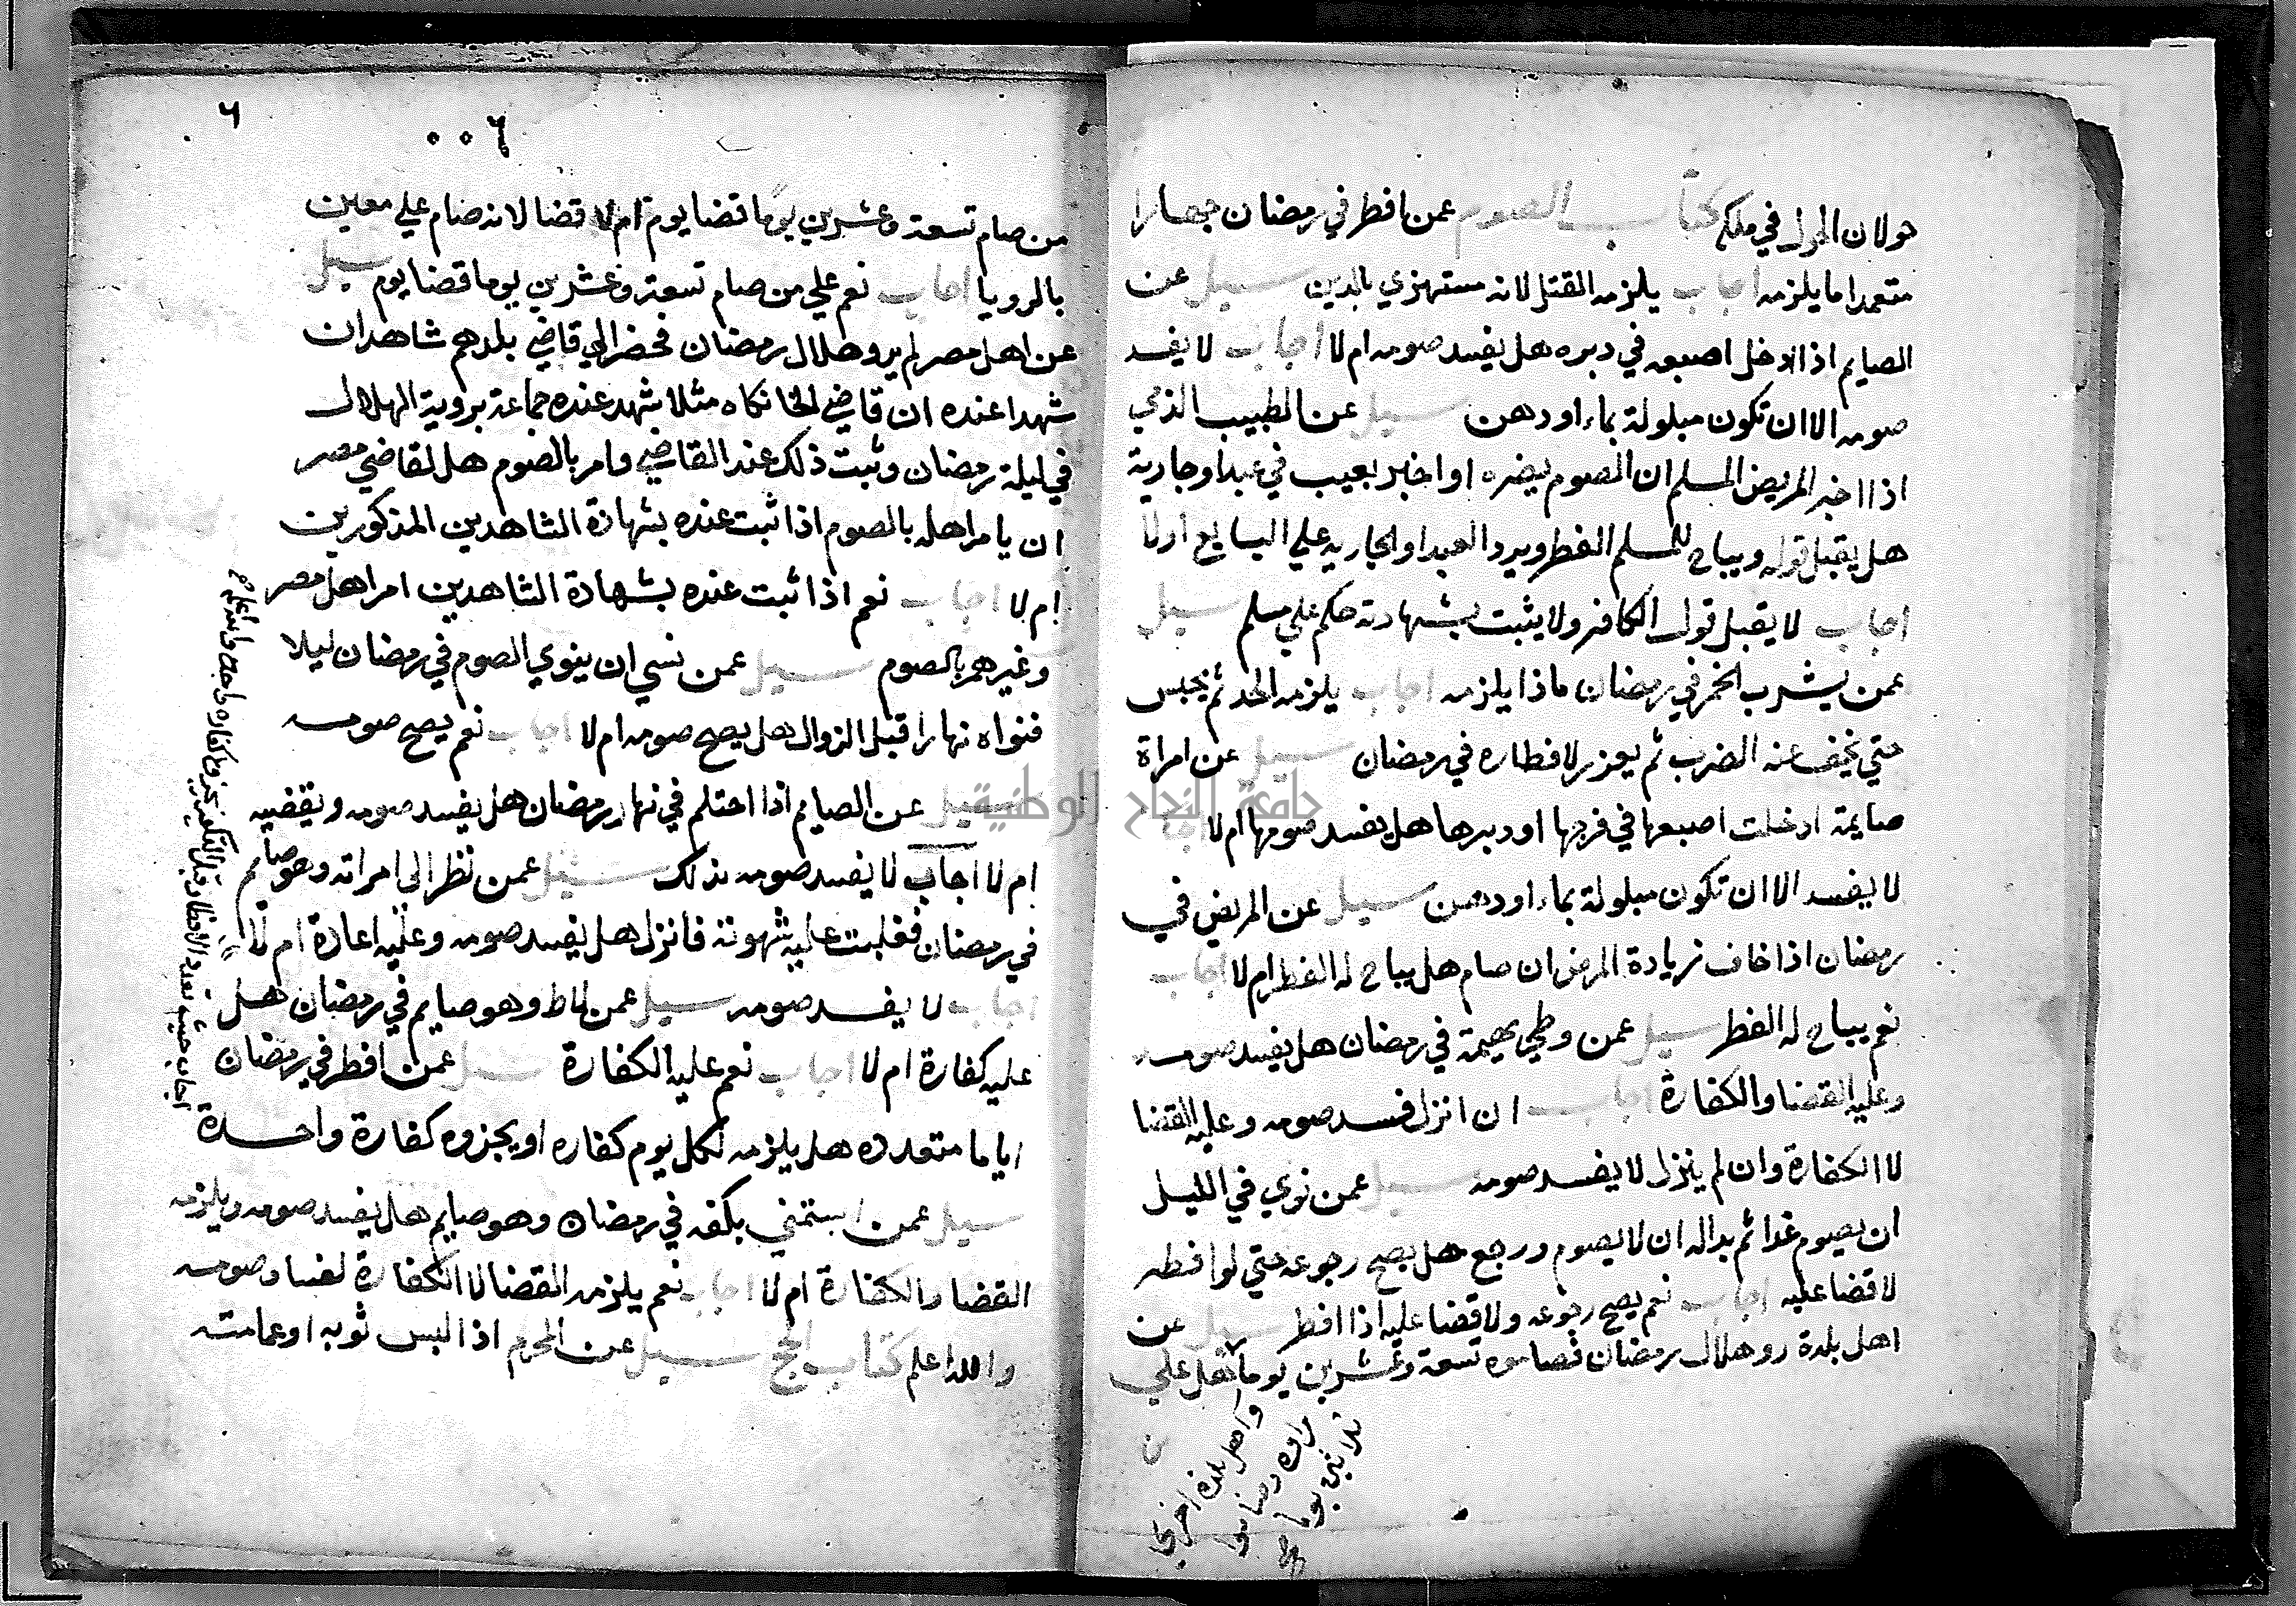 حولان الحول في ملكه كتاب الصوم عمن افطر في رمضان جهارا
متعمدا ما يلزمه اجاب يلزمه القتل لانه مستهزي بالدين سيل عن
الصايم اذا ادخل اصبعه في دبره هل يفسد صومه ام لا اجاب لا يفسد
صومه الا ان تكون مبلولة بماء او دهن سيل عن الطبيب الذمي
اذا اخبر المريض المسلم ان الصوم يضره او اخبر بعيب في عبد او جارية
هل يقبل قوله ويباح للمسلم الفطر ويرد العبد او الجاريه علي البايع اولا
اجاب لا يقبل قول الكافر ولا يثبت بشهادته حكم علي مسلم سيل
عمن يشرب الخمر في رمضان ماذا يلزمه اجاب يلزمه الحد ثم يحبس
حتي يخف عنه الضرب ثم يعزر لافطاره في رمضان سيل عن امراة
صايمة ادخلت اصبعها في فرجها او دبرها هل يفسد صومها ام لا اجاب
لا يفسد الا ان تكون مبلولة بماء او دهن سيل عن المريض في
رمضان اذا خاف زيادة المرض ان صام هل يباح له الفطر ام لا اجاب
نعم يباح له الفطر سيل عمن وطي بهيمة في رمضان هل يفسد صومه
وعليه القضا والكفارة اجاب ان انزل فسد صومه وعليه القضا
لا الكفارة وان لم ينزل لا يفسد صومه سيل عمن نوي في الليل
ان يصوم غدا ثم بداله ان لا يصوم ورجع هل يصح رجوعه حتي لو افطر
لا قضا عليه اجاب نعم يصح رجوعه ولا قضا عليه اذا افطر سيل عن
اهل بلدة رو هلال رمضان فصاموه تسعة وعشرين يوما هل علي
واهل بلدة اخري
ثلاثين يوما
من صام تسعة وعشرين يوما قضا يوم ام لا قضا لانه صام علي معين
بالرويا اجاب نعم علي من صام تسعة وعشرين يوما قضا يوم سيل
عن اهل مصر لم يرو هلال رمضان فحضر الي قاضي بلدهم شاهدان
شهدا عنده ان قاضي الخانكاه مثلا شهد عنده جماعة بروية الهلال
في ليلة رمضان وثبت ذلك عند القاضي وامر بالصوم هل لقاضي مصر
ان يامر اهله بالصوم اذا ثبت عنده بشهادة الشاهدين المذكورين
ام لا اجاب نعم اذا ثبت عنده بشهادة الشاهدين امر اهل مصر
وغيرهم بالصوم سيل عمن نسي ان ينوي الصوم في رمضان ليلا
فنواه نهارا قبل الزوال هل يصح صومه ام لا اجاب نعم يصح صومه
سيل عن الصايم اذا احتلم في نهار رمضان هل يفسد صومه ويقضيه
ام لا اجاب لا يفسد صومه بذلك سيل عمن نظر الي امراته وهو صايم
في رمضان فغلبت عليه شهوته فانزل هل يفسد صومه وعليه اعادة ام لا
اجاب لا يفسد صومه سيل عمن لاط وهو صايم في رمضان هل
عليه كفارة ام لا اجاب نعم عليه الكفارة سيل عمن افطر في رمضان
اياما متعدده هل يلزمه لكل يوم كفاره او يجزوه كفارة واحدة
سيل عمن استمني بكفه في رمضان وهو صايم هل يفسد صومه ويلزمه
القضا والكفارة ام لا اجاب نعم يلزمه القضا لا الكفارة لفساد صومه
والله اعلم كتاب الحج سيل عن المحرم اذا لبس ثوبه او عمامته
اجاب حيث تعدد الافطار وقبل التكفير يجزوه كفاره واحدة والله اعلم
٦
٠٠٦
جامعة النجاح الوطنية